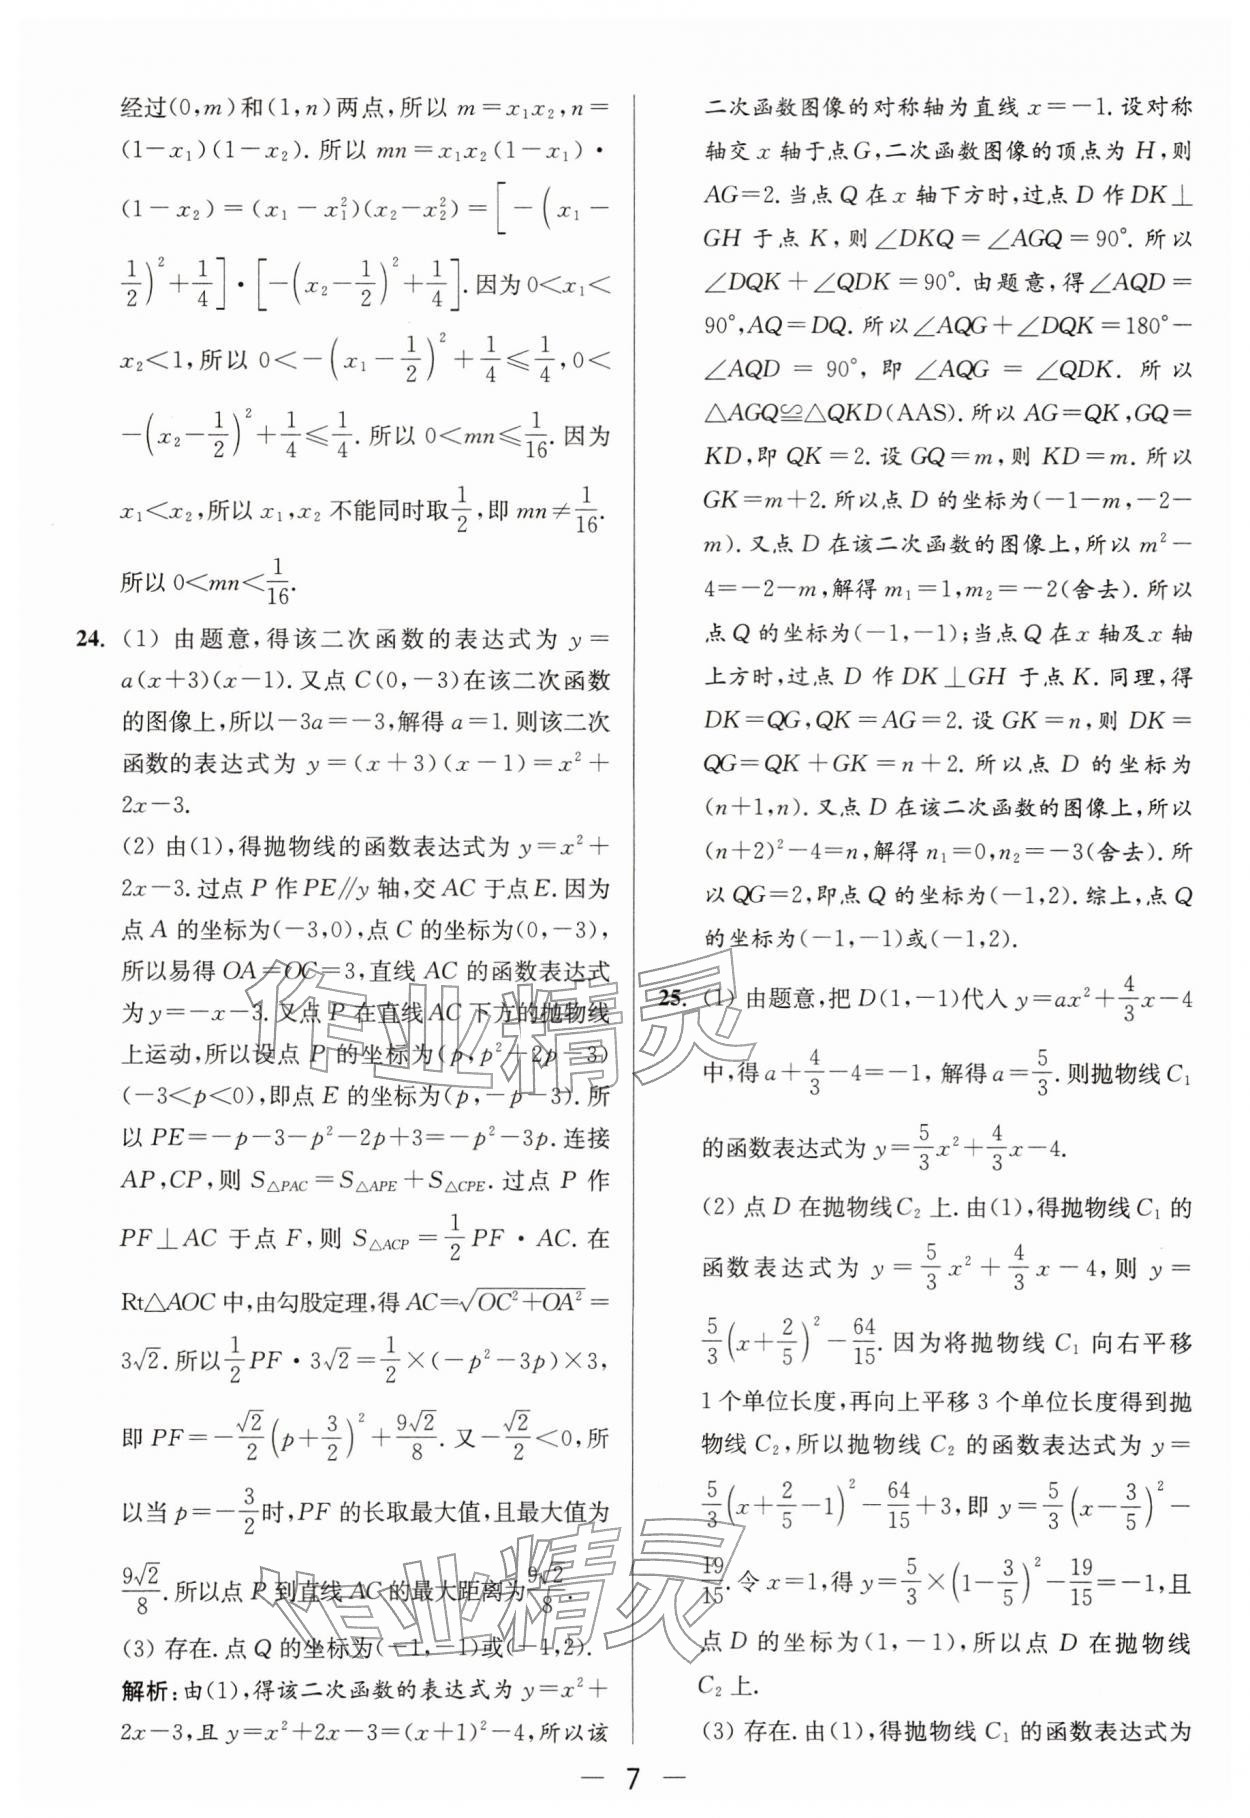 经过(0,m)和(1,n)两点,所以 m=x₁x₂,n=
(1-x₁)(1-x₂).所以 mn=x₁x₂(1-x₁)·
(1-x₂)=(x₁-x₁²)(x₂-x₂²)=[-(x₁-
1/2)²+1/4]·[-(x₂-1/2)²+1/4].因为0<x₁<
x₂<1,所以 0<-(x₁-1/2)²+1/4≤1/4,0<
-(x₂-1/2)²+1/4≤1/4.所以0<mn≤1/16.因为
x₁<x₂,所以 x₁,x₂ 不能同时取1/2,即 mn≠1/16.
所以0<mn<1/16.
24. (1) 由题意,得该二次函数的表达式为 y=
a(x+3)(x-1).又点C(0,-3)在该二次函数
的图像上,所以-3a=-3,解得 a=1.则该二次
函数的表达式为 y=(x+3)(x-1)=x²+
2x-3.
(2) 由(1),得抛物线的函数表达式为 y=x²+
2x-3.过点 P 作PE∥y 轴,交 AC 于点E.因为
点 A 的坐标为(-3,0),点 C 的坐标为(0,-3),
所以易得 OA=OC=3,直线 AC 的函数表达式
为y=-x-3.又点 P 在直线AC 下方的抛物线
上运动,所以设点 P 的坐标为(p,p²+2p-3)
(-3<p<0),即点 E 的坐标为(p,-p-3).所
以 PE=-p-3-p²-2p+3=-p²-3p.连接
AP,CP,则 S△PAC=S△APE+S△CPE.过点 P 作
PF⊥AC 于点 F,则 S△ACP=1/2PF·AC.在
Rt△AOC中,由勾股定理,得 AC=√(OC²+OA²)=
3√2.所以1/2PF·3√2=1/2×(-p²-3p)×3,
即 PF=-√2/2(p+3/2)²+9√2/8.又-√2/2<0,所
以当 p=-3/2时,PF 的长取最大值,且最大值为
9√2/8.所以点 P 到直线 AC 的最大距离为9√2/8.
(3) 存在.点 Q 的坐标为(-1,-1)或(-1,2).
解析:由(1),得该二次函数的表达式为 y=x²+
2x-3,且 y=x²+2x-3=(x+1)²-4,所以该
二次函数图像的对称轴为直线 x=-1.设对称
轴交 x 轴于点G,二次函数图像的顶点为 H,则
AG=2.当点 Q 在 x 轴下方时,过点 D 作DK⊥
GH 于点 K,则∠DKQ=∠AGQ=90°.所以
∠DQK+∠QDK=90°.由题意,得∠AQD=
90°,AQ=DQ.所以∠AQG+∠DQK=180°-
∠AQD=90°,即∠AQG=∠QDK.所以
△AGQ≌△QKD(AAS).所以 AG=QK,GQ=
KD,即 QK=2.设 GQ=m,则 KD=m.所以
GK=m+2.所以点 D 的坐标为(-1-m,-2-
m).又点 D 在该二次函数的图像上,所以 m²-
4=-2-m,解得 m₁=1,m₂=-2(舍去).所以
点 Q 的坐标为(-1,-1);当点 Q 在 x 轴及 x 轴
上方时,过点 D 作 DK⊥GH 于点K.同理,得
DK=QG,QK=AG=2.设 GK=n,则 DK=
QG=QK+GK=n+2.所以点 D 的坐标为
(n+1,n).又点 D 在该二次函数的图像上,所以
(n+2)²-4=n,解得 n₁=0,n₂=-3(舍去).所
以 QG=2,即点 Q 的坐标为(-1,2).综上,点 Q
的坐标为(-1,-1)或(-1,2).
25. (1) 由题意,把 D(1,-1)代入 y=ax²+4/3x-4
中,得 a+4/3-4=-1,解得a=5/3.则抛物线 C₁
的函数表达式为 y=5/3x²+4/3x-4.
(2) 点 D 在抛物线C₂ 上.由(1),得抛物线 C₁ 的
函数表达式为 y=5/3x²+4/3x-4,则 y=
5/3(x+2/5)²-64/15.因为将抛物线 C₁ 向右平移
1个单位长度,再向上平移 3 个单位长度得到抛
物线 C₂,所以抛物线 C₂ 的函数表达式为 y=
5/3(x+2/5-1)²-64/15+3,即 y=5/3(x-3/5)²-
19/15.令 x=1,得 y=5/3×(1-3/5)²-19/15=-1,且
点 D 的坐标为(1,-1),所以点 D 在抛物线
C₂ 上.
(3) 存在.由(1),得抛物线 C₁ 的函数表达式为
— 7 —
作业精灵
作业精灵